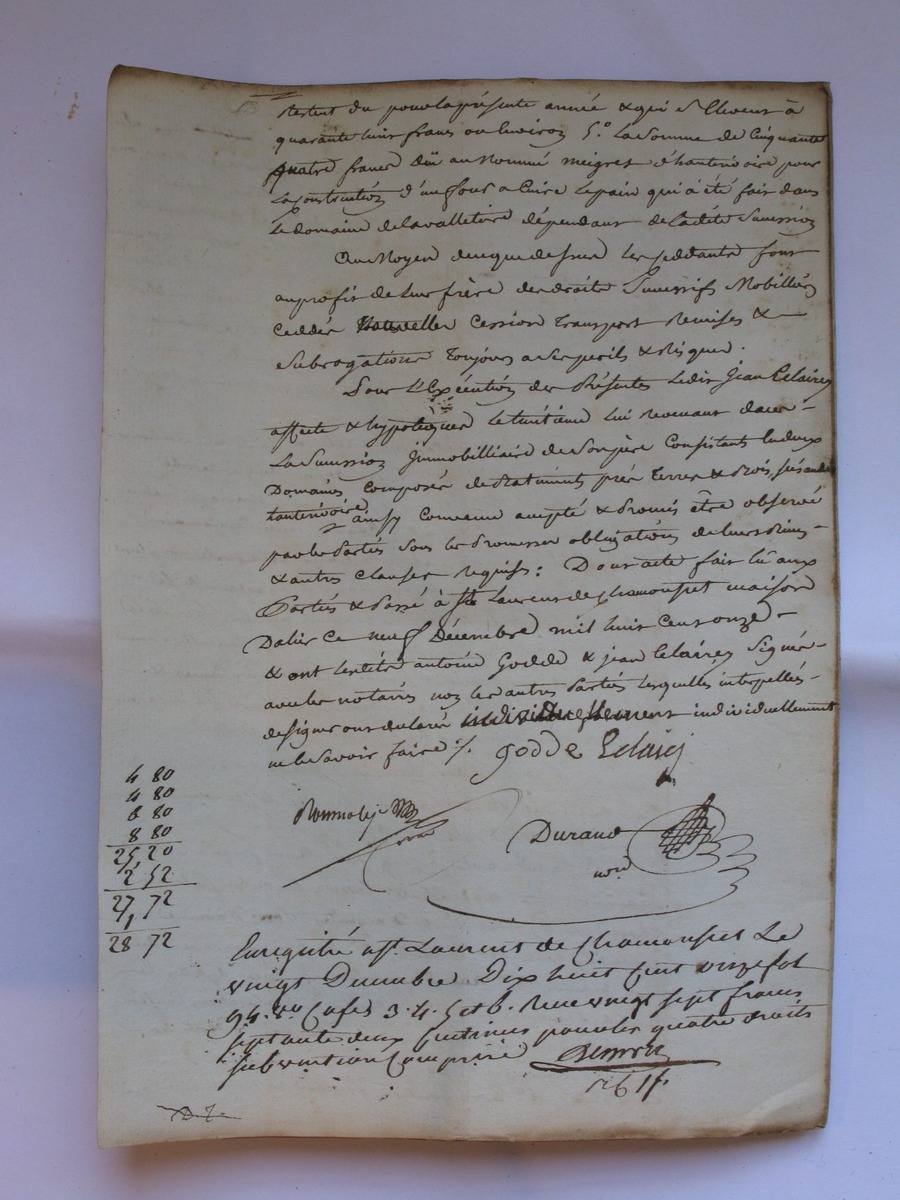 Restent du pour la présente année & qui s'Elevent à
quarante huit francs ou Environ 5.o La somme de Cinquante
quatre francs dûe au Nommé meigret d'hauterivoire pour
La Construction d'un four a Cuire le pain qui a été fait dans
Le domaine de la valletière dépendant de Ladite Succession
Au Moyen de ce que dessus les Ceddants font
au profit de leur frère des droits Successifs Mobilliers
Ceddés Nouvelles Cession Transport Remises &
Subrogations Toujours a ses perils & Risques.
Pour l'Exécution des Présentes Ledit Jean Eclaircy
affecte & hypotèque le huitième lui Revenant dans
La Succession Immobilliaire de Son père Consistants En deux
Domaines Composés de Batiments près Terres & Bois, scis audit
hauterivoire
ainsy Convenu accepté & Promis être observé
par les Partiés sous les Promesses obligations de leurs Biens
& autres clauses Requises : Dont acte fait lû aux
Partiés & Passé à St Laurent de Chamousset maison
Dalier Ce neuf Décembre mil huit cent onze
& ont Lesdits antoine Godde & jean Eclaircy Signés
avec les notaires non les autres Partiés Lesquelles interpellés
de signer ont declaré individuellement
ne le Savoir faire :/.
godde Eclaicj
Durand
nore
4 80
4 80
6 80
8 80
25, 20
2 52
27, 72
1
28 72
Enregistré à St. Laurent de Chamousset Le
vingt Decembre Dix huit Cent onze fol
94. vo Cases 3. 4. 5 et 6. Reçu vingt sept francs
septante deux Centimes pour les quatre droits
subvention Comprise